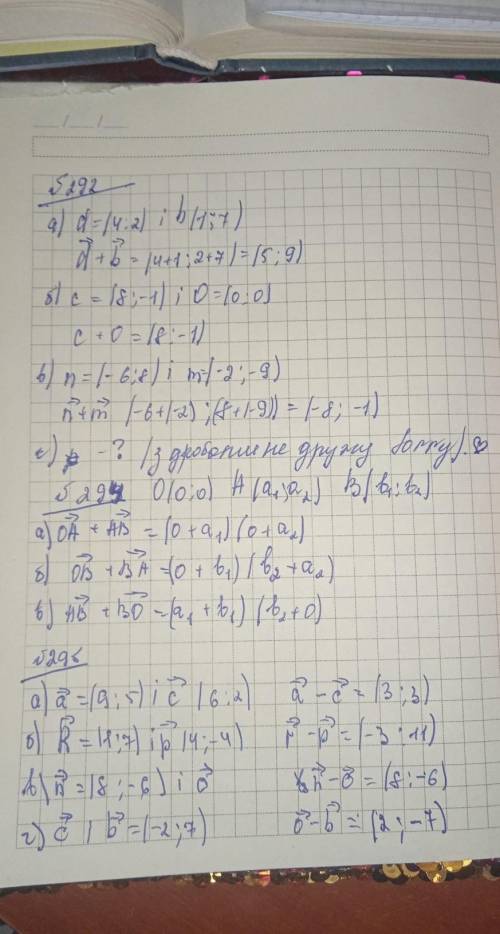 №292
а) d⃗=(4;2) і b(1;7)
d⃗+b⃗=(4+1;2+7)=(5;9)
б) c=(8;-1) і O=(0;0)
c+0=(8;-1)
в) n=(-6;8) і m=(-2;-9)
n⃗+m⃗ (-6+(-2);(8+(-9))=(-8;-1)
г) -? (з дробопи не дружу
№294 O(0;0) A(a₁;a₂) B(b₁;b₂)
а) OA⃗+AB⃗=(0+a₁)(0+a₂)
б) OB⃗+BA⃗=(0+b₁)(b₂+a₂)
в) AB⃗+BO⃗=(a₁+b₁)(b₂+0)
№296
а) a⃗=(9;5) і c⃗(6;2) a⃗-c⃗=(3;3)
б) k⃗=(1;7) і p⃗(4;-4) r⃗-p⃗=(-3;11)
в) n⃗=(8;-6) і o⃗ n⃗-o⃗=(8;-6)
г) o⃗ і b⃗=(-2;7) o⃗-b⃗=(2;-7)